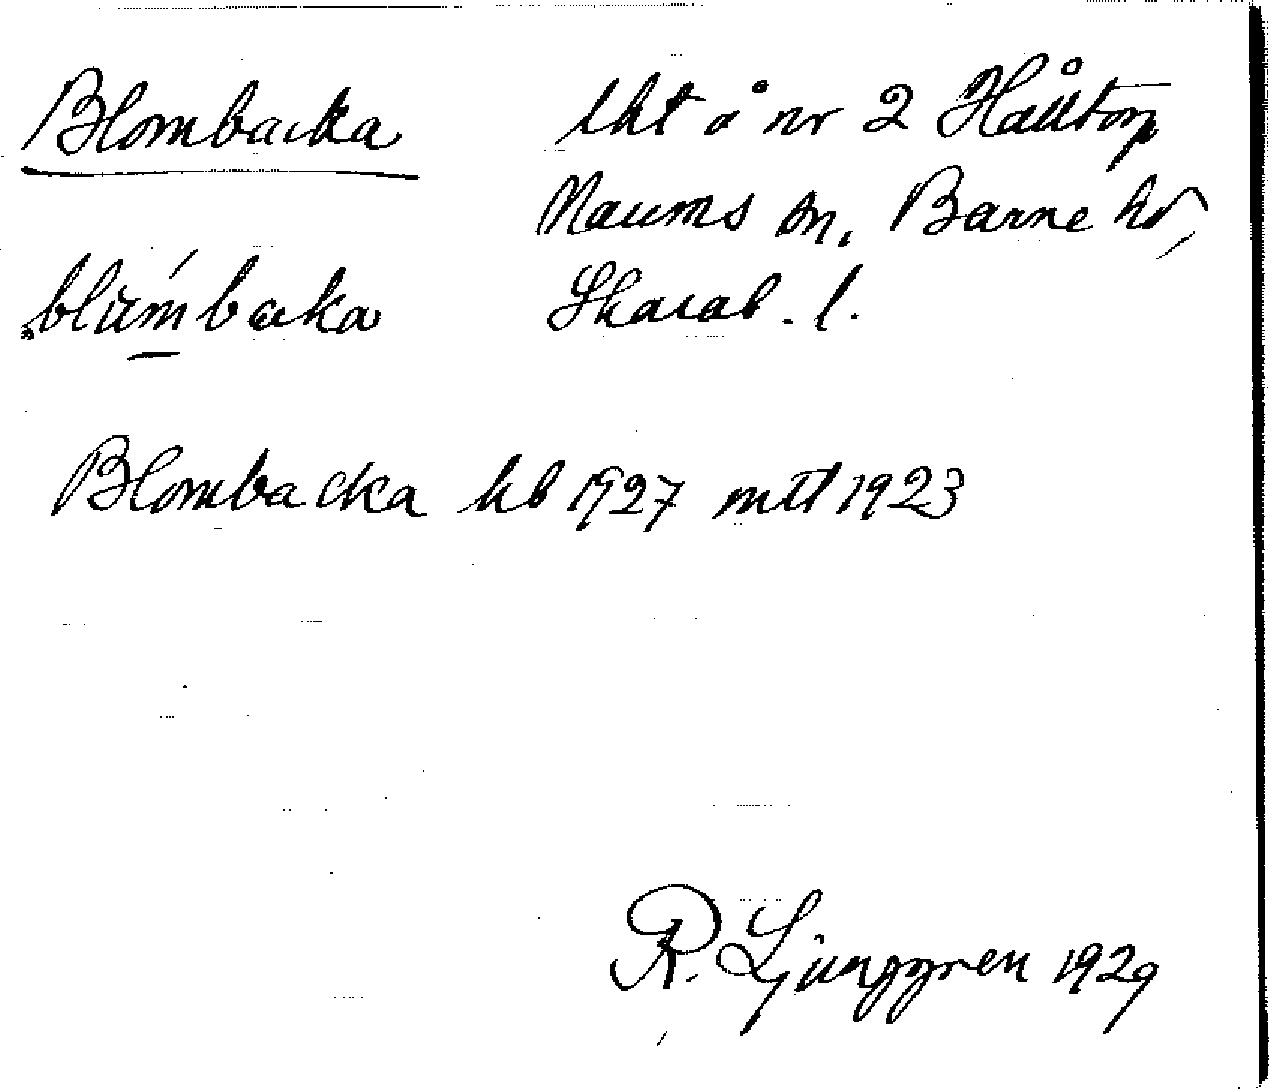 Blombacka
lht å nr 2 Hålltorp
Naums sn, Barne hd,
Skarab. l.
blùmbacka
Blombacka kb 1927 mtl 1923
R. Ljunggren 1929